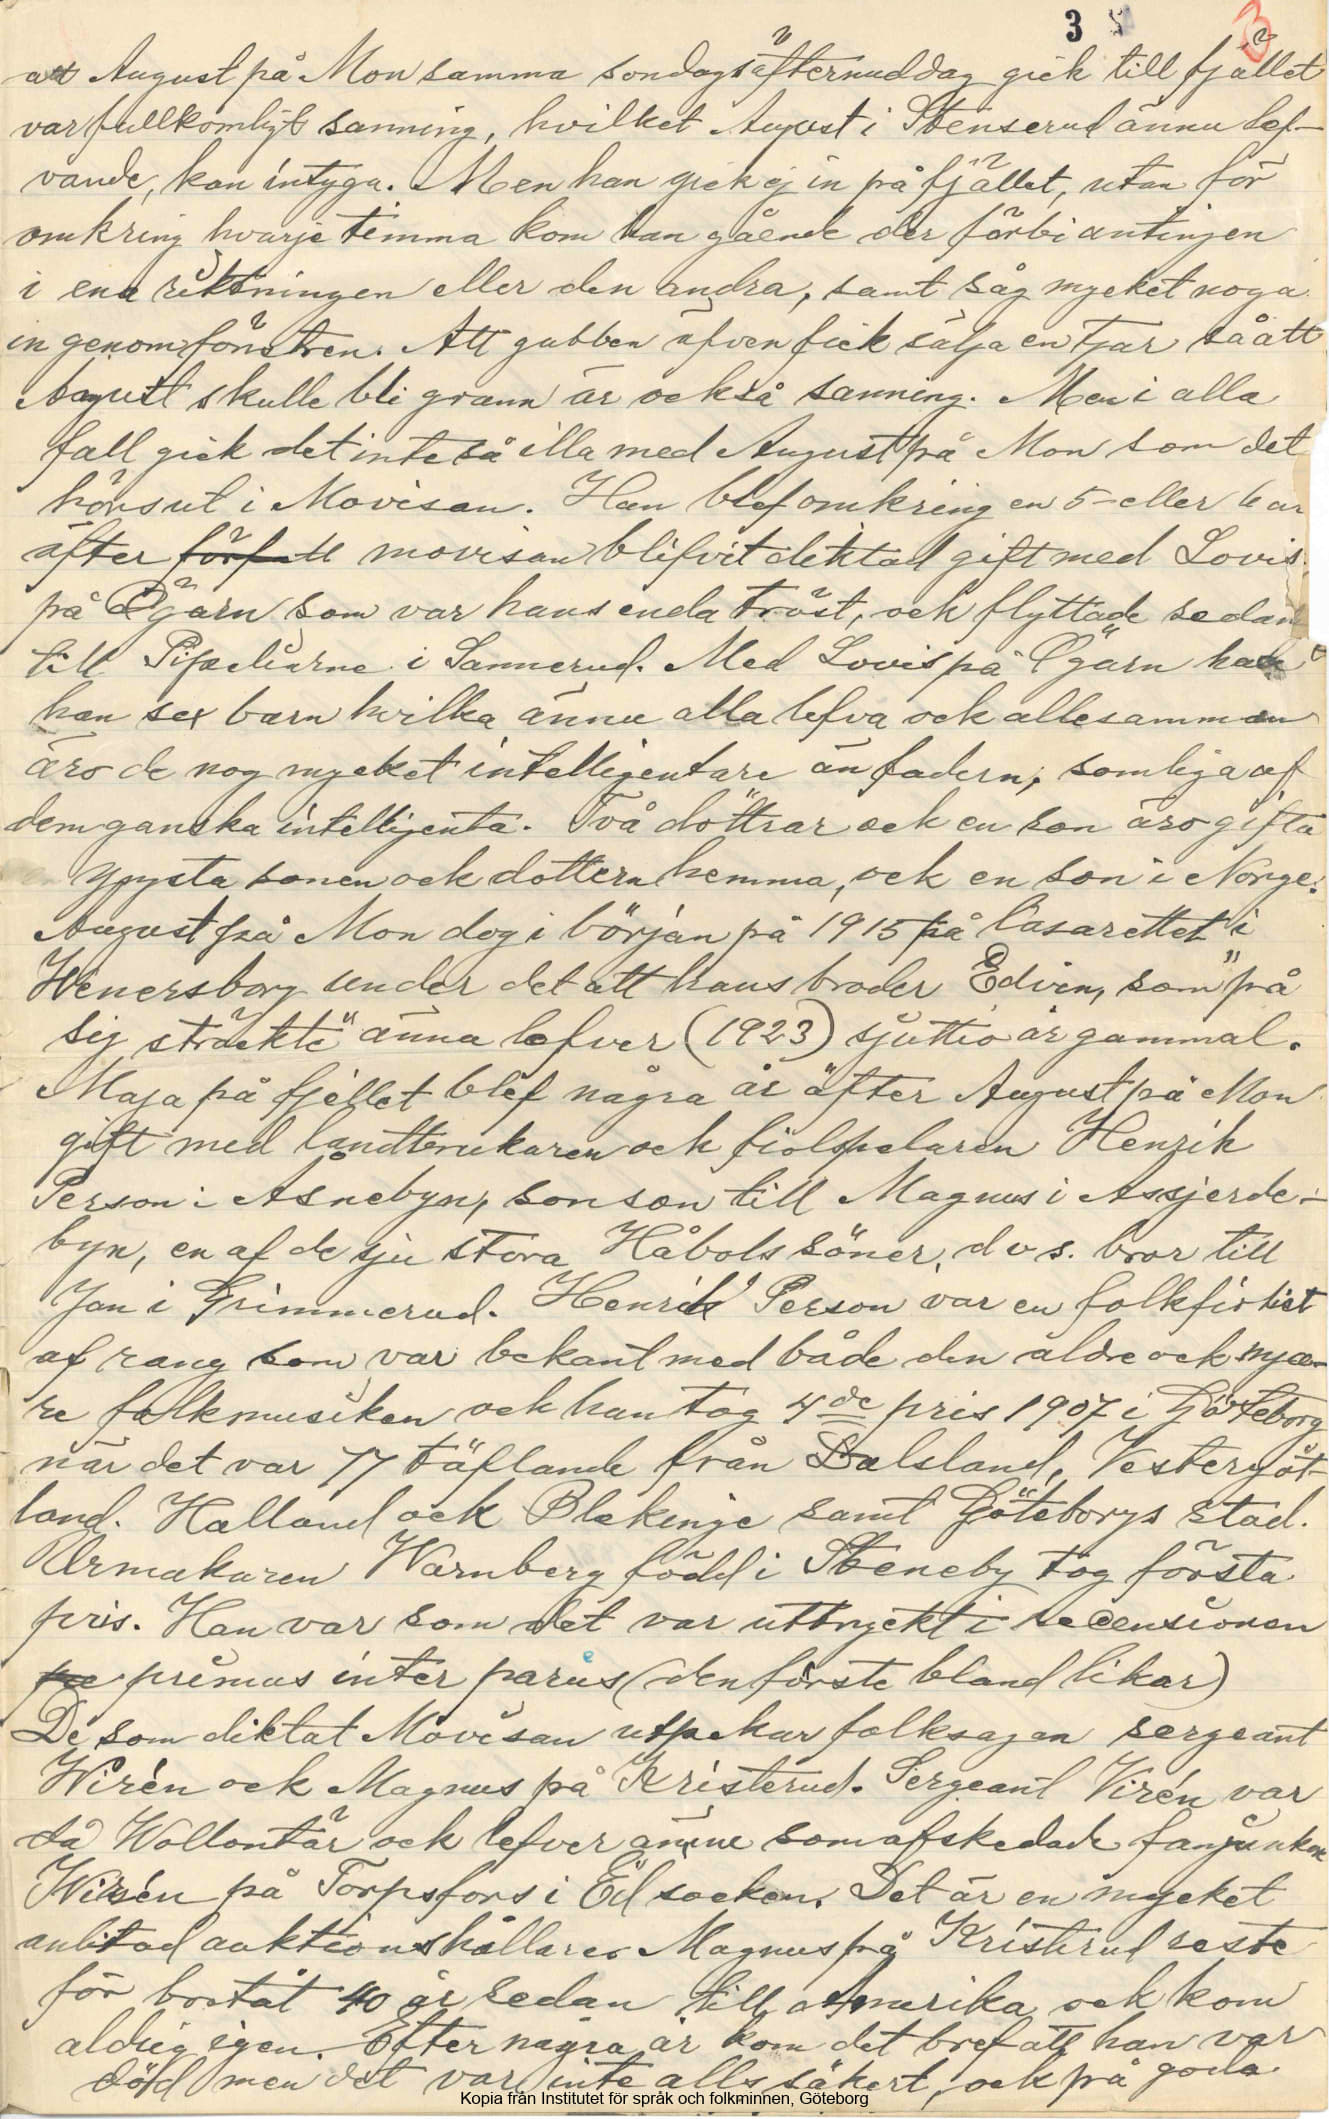 3 5 3
att August på Mon samma söndagsäftermiddag gick till fjället
var fullkomligt sanning, hvilket August i Stenserud ännu lef-
vande, kan intyga. Men han gick ej in på fjället, utan för
omkring hvarje timma kom han gående der förbi antingen
i ena riktningen eller den andra, samt såg mycket noga
in genom fönstren. Att gubben äfven fick sälja en tjur så att
August skulle bli grann är också sanning. Men i alla
fall gick det inte så illa med August på Mon som det
hörs ut i Movisan. Han blef omkring en 5- eller 6 år
äfter movisan blifvit diktad gift med Lovis
på Ögarn som var hans enda tröst, ock flyttade sedan
till Pipeliarne i Sannerud. Med Lovis på Ögarn hade
han sex barn hvilka ännu alla lefva ock allesamman
äro de nog mycket intelligentare än fadern, somliga af
dem ganska intelligenta. Två döttrar ock en son äro gifta
yngsta sonen ock dottern hemma, ock en son i Norge.
August på Mon dog i början på 1915 på lasarettet i
Wenersborg under det att hans broder Edvin, som "på
sig sträckte" ännu lefver (1923) sjuttio år gammal.
Maja på fjellet blef några år äfter August på Mon
gift med landtbrukaren ock fiolspelaren Henrik
Person i Åsnebyn, sonson till Magnus i Assjerde-
byn, en af de sju stora Håbols söner, d v s. bror till
Jan i Grimmerud. Henrik Person var en folkfiolist
af rang som var bekant med både den äldre ock nyae-
re folkmusiken ock han tog 4de pris 1907 i Göteborg
när det var 77 täflande från Dalsland, Vestergöt-
land. Halland ock Blekinge samt Göteborgs stad.
Urmakaren Warnberg född i Steneby tog första
pris. Han var som det var uttryckt i recensionen
primus inter pares (den förste bland likar)
De som diktat Movisan utpekar folksagan sergeant
Wirén ock Magnus på Kristerud. Sergeant Virén var
då Wollontär ock lefver ännu som afskedade fanjunkare
Wirén på Torpsfors i Ed socken. Det är en mycket
anlitad auktionshållare. Magnus på Kristerud reste
för bortåt 40 år sedan till Amerika ock kom
aldrig igen. Efter några år kom det bref att han var
död men det var inte alls säkert, ock på goda
Kopia från Institutet för språk och folkminnen, Göteborg